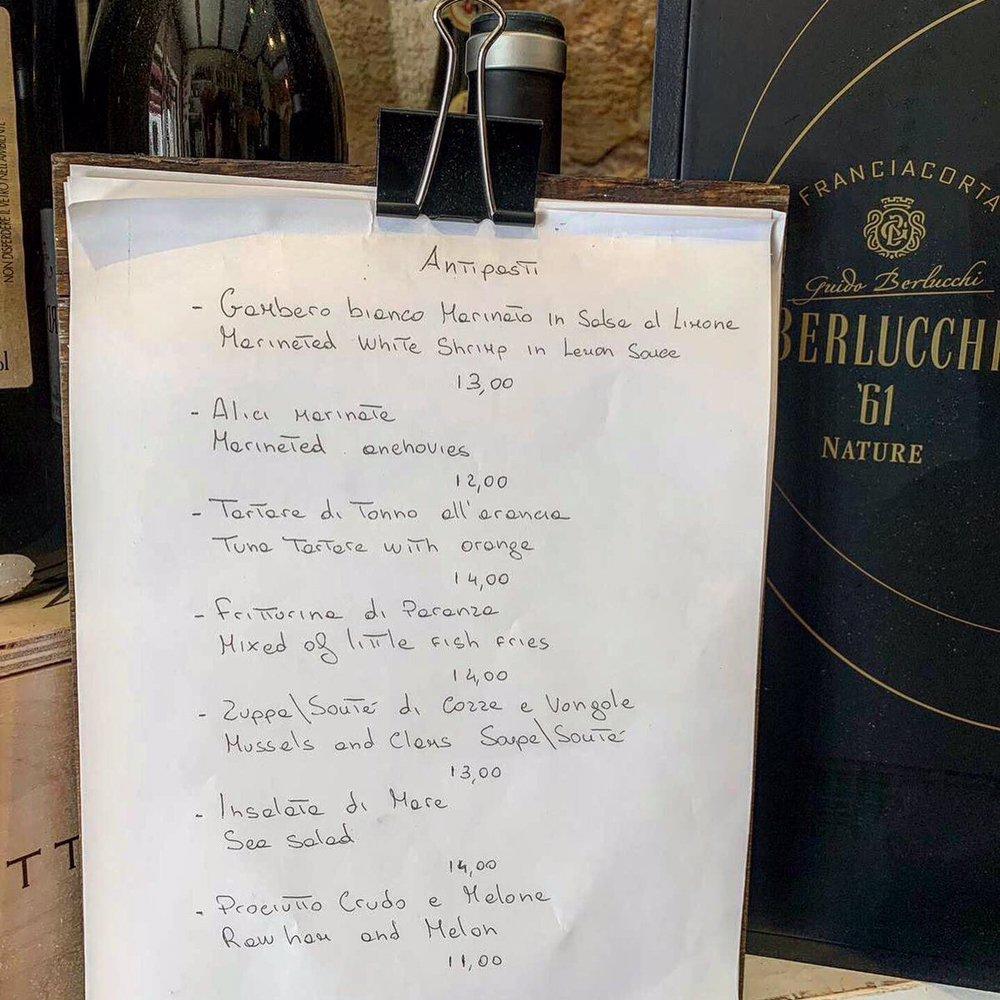 Antipasti
- Gambero bianco Marinato in Salsa al Limone
Marineted White Shrimp in Lemon Sauce
13,00
- Alici marinate
Marineted anchovies
12,00
- Tartare di Tonno all'arancia
Tuna Tartare with orange
14,00
- Fritturina di Paranza
Mixed of little fish fries
14,00
- Zuppa\Souté di Cozze e Vongole
Mussels and Clams Soupe\Souté
13,00
- Insalata di Mare
Sea salad
14,00
- Prociutto Crudo e Melone
Raw ham and Melon
11,00
FRANCIACORTA
Guido Berlucchi
BERLUCCHI
'61
NATURE
NON DISPERDERE IL VETRO NELL'AMBIENTE